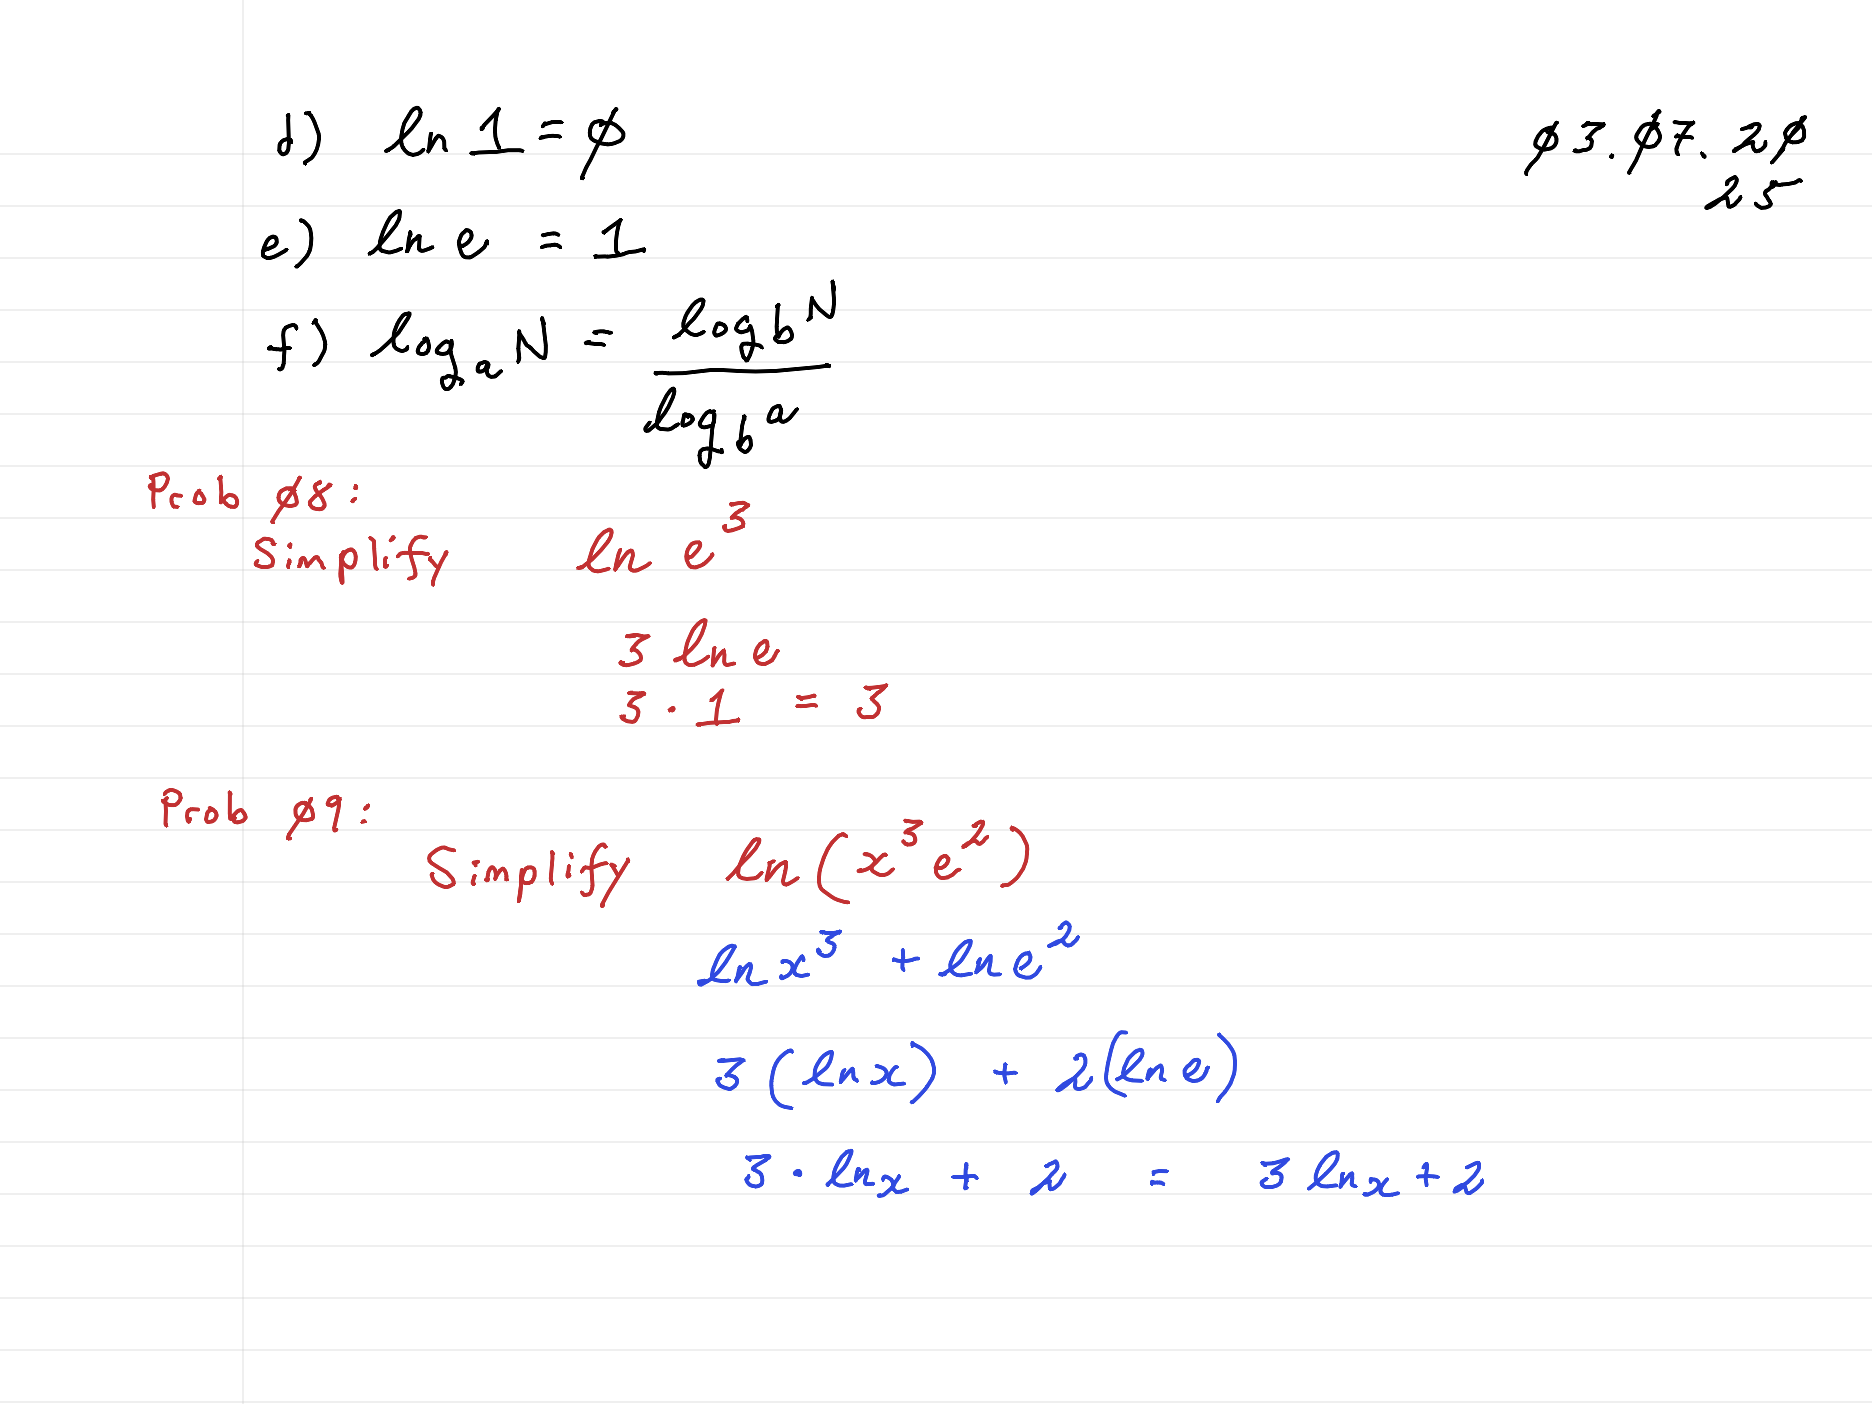 d) ln 1 = 0
03.07.20
25
e) ln e = 1
f) log_a N = log_b N / log_b a
Prob 08:
Simplify ln e^3
3 ln e
3 · 1 = 3
Prob 09:
Simplify ln(x^3 e^2)
ln x^3 + ln e^2
3 (ln x) + 2(ln e)
3 · ln x + 2 = 3 ln x + 2